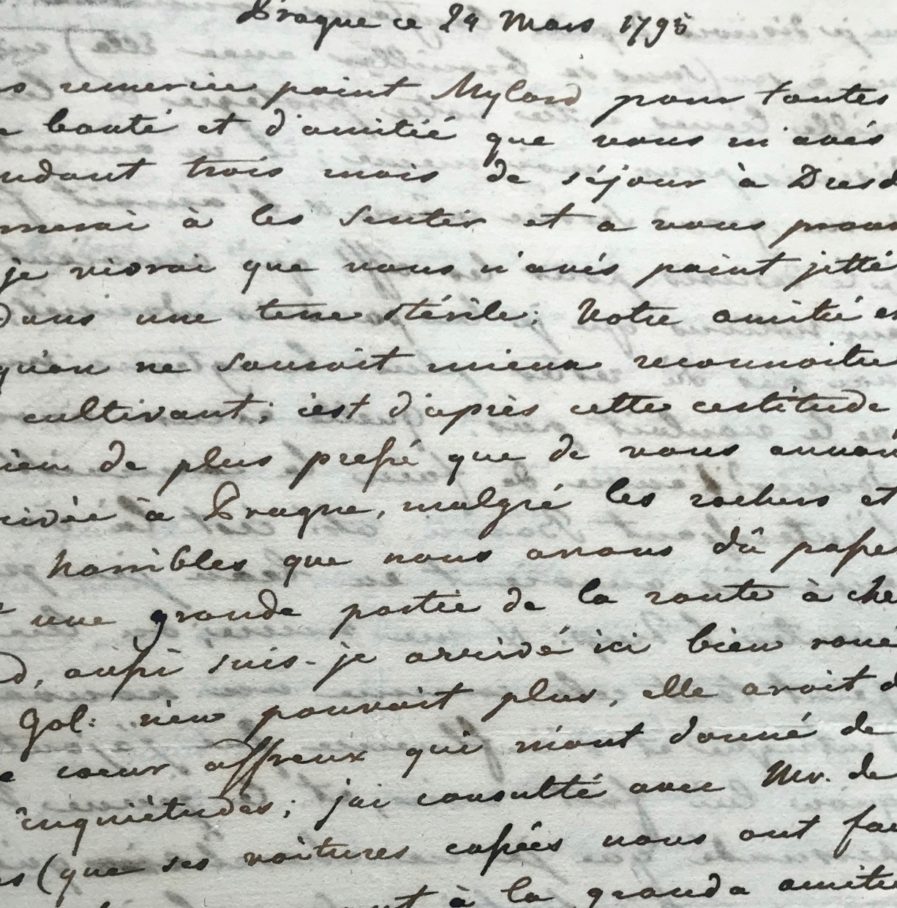 Prague ce 24 Mars 1795
remercie point Mylord pour toutes
bonté et d'amitié que vous m'avés
ndant trois mois de séjour à Dresd
merai à les sentir et a vous prouv
je vivrai que vous n'avés point jetté
Dans une terre stérile; Votre amitié es
qu'on ne sauroit mieux reconnoitre
cultivant; c'est d'après cette certitude
rien de plus pressé que de vous annon
rivée à Prague, malgré les rochers et
horribles que nous avons dû passe
une grande partie de la route à che
d, aussi suis-je arrivé ici bien roué
Gol: n'en pouvait plus, elle avoit d
coeur affreux qui m'ont donné de
inquiétudes; j'ai consulté avec Mr. de
es (que ses voitures cassées nous ont fai
à la grande amitié